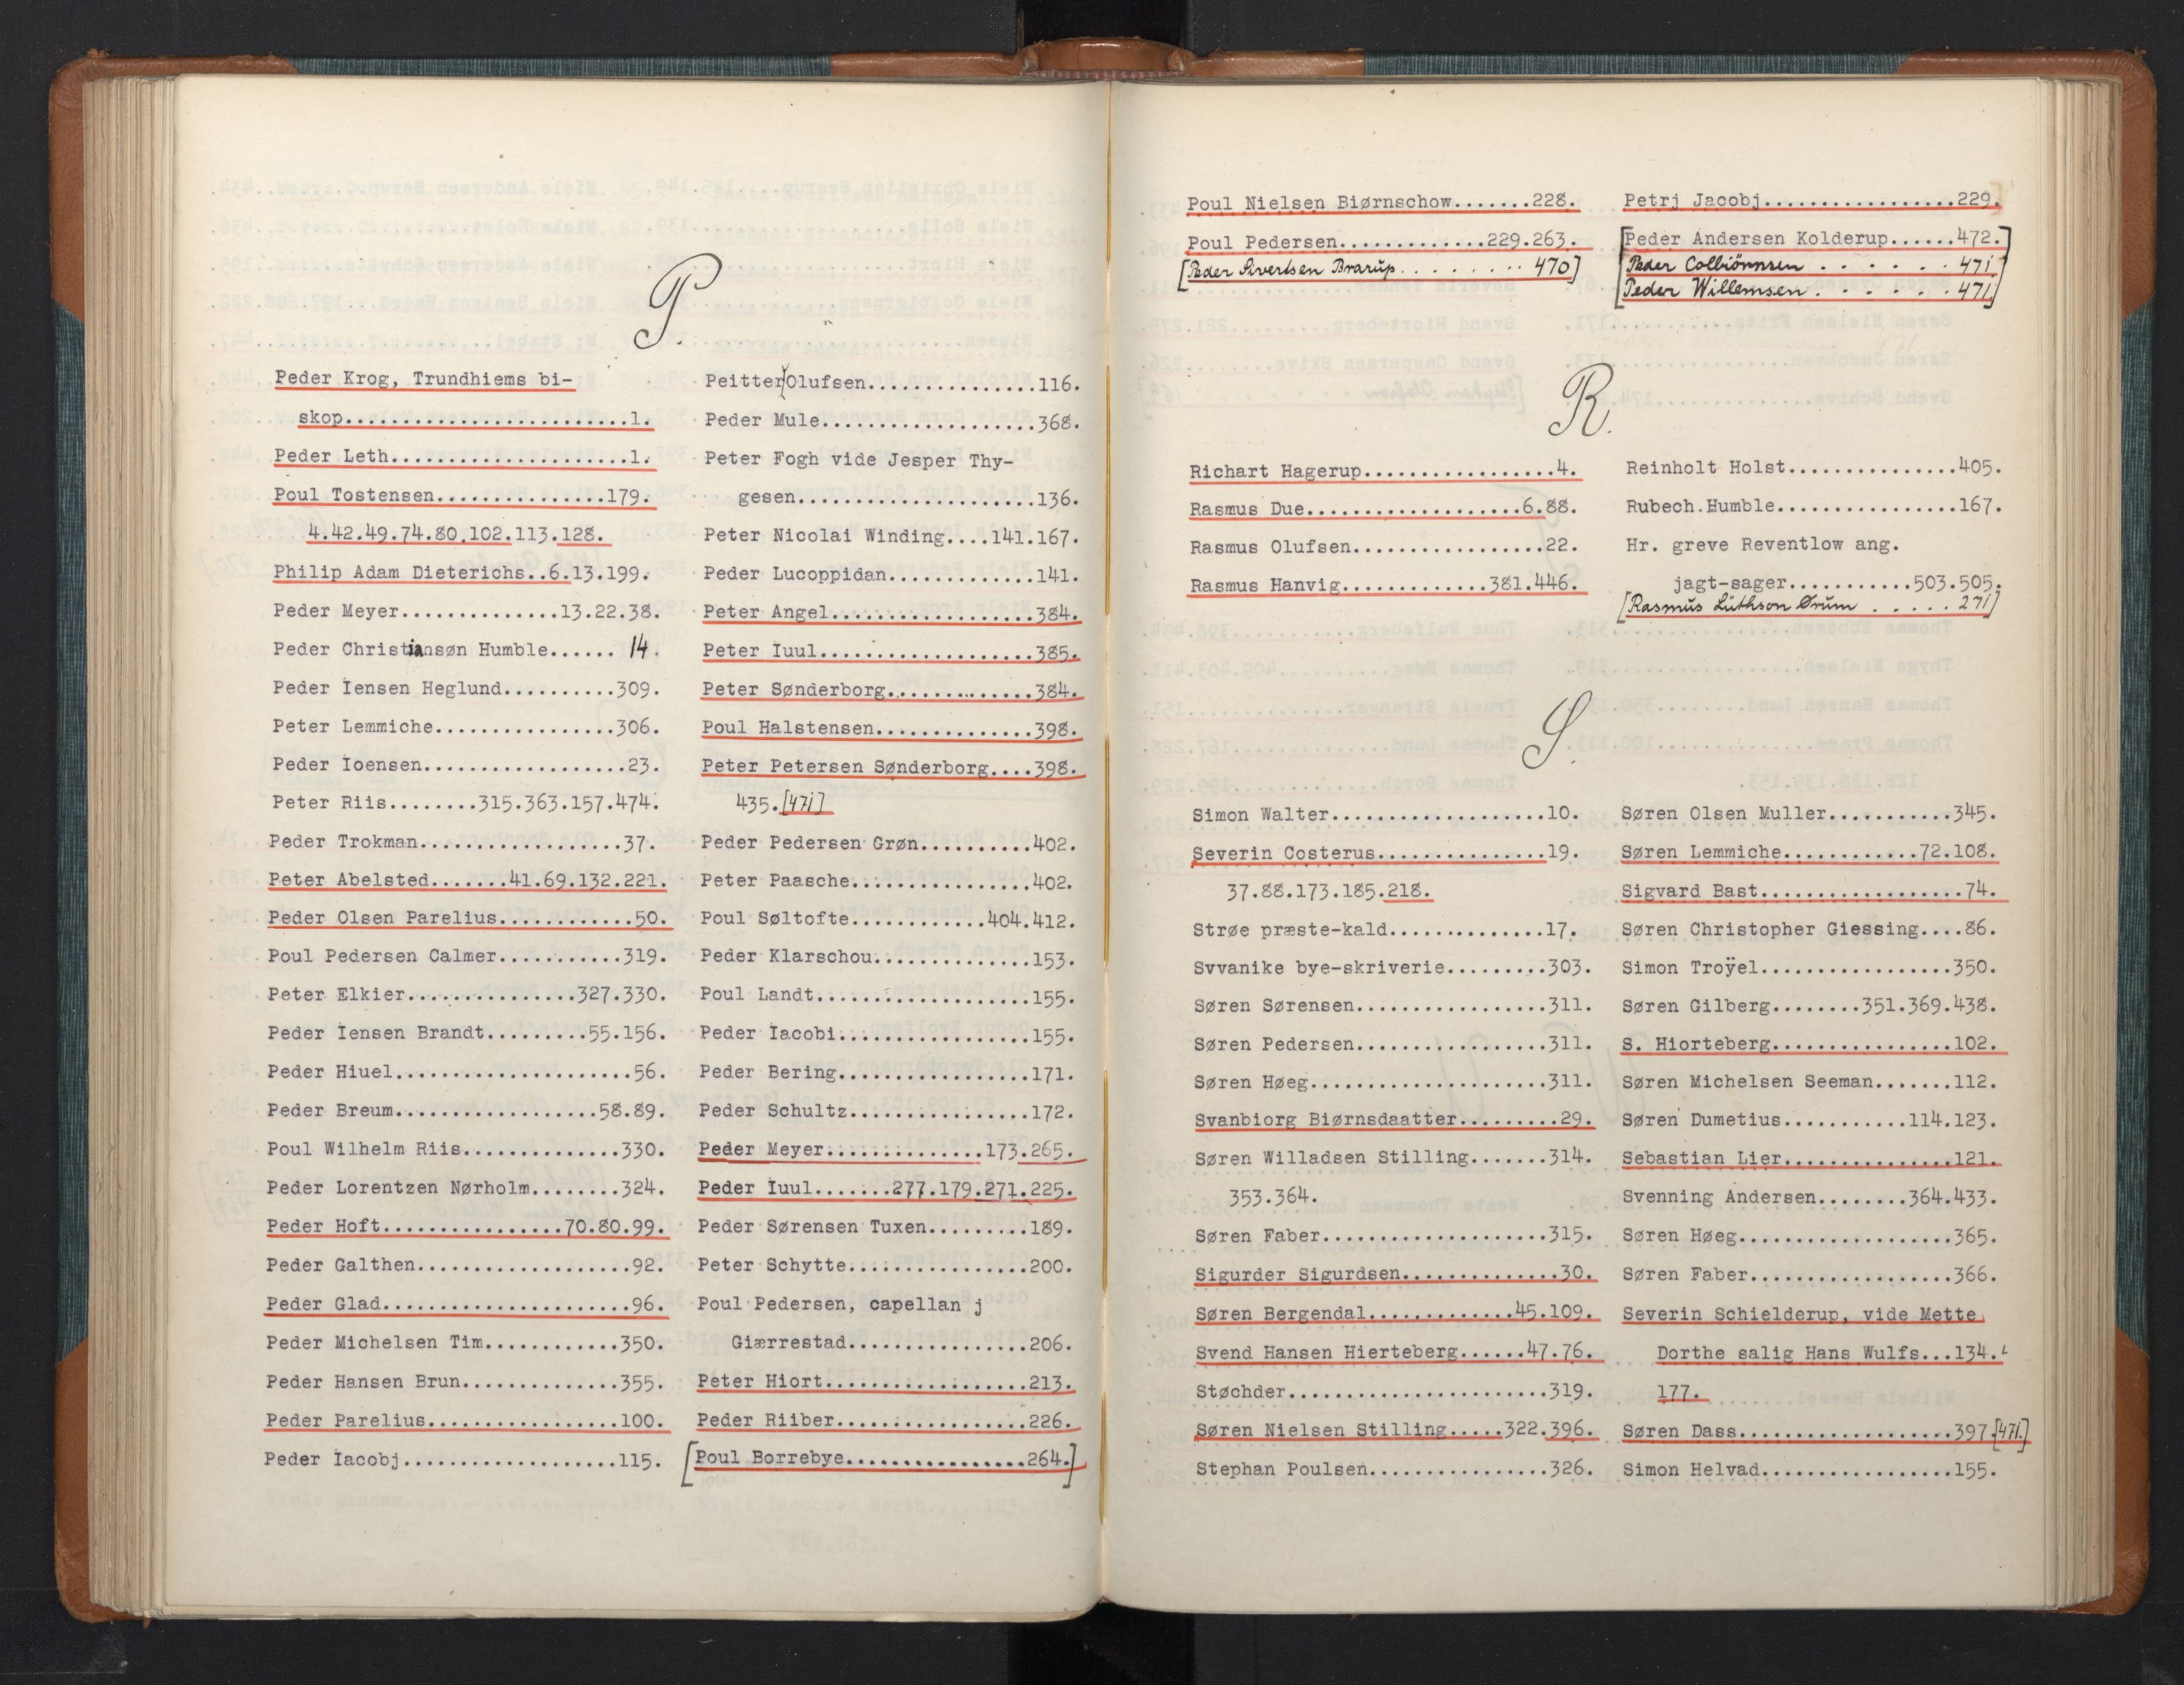 P.
Peder Krog, Trundhiems bi-
skop.........................1.
Peder Leth.....................1.
Poul Tostensen...............179.
4.42.49.74.80.102.113.128.
Philip Adam Dieterichs..6.13.199.
Peder Meyer..............13.22.38.
Peder Christiansøn Humble...... 14.
Peder Iensen Heglund..........309.
Peter Lemmiche................306.
Peder Ioensen..................23.
Peter Riis........315.363.157.474.
Peder Trokman..................37.
Peter Abelsted.......41.69.132.221.
Peder Olsen Parelius............50.
Poul Pedersen Calmer...........319.
Peter Elkier...............327.330.
Peder Iensen Brandt.........55.156.
Peder Hiuel.....................56.
Peder Breum..................58.89.
Poul Wilhelm Riis..............330.
Peder Lorentzen Nørholm........324.
Peder Hoft................70.80.99.
Peder Galthen...................92.
Peder Glad......................96.
Peder Michelsen Tim............350.
Peder Hansen Brun..............355.
Peder Parelius.................100.
Peder Iacobj...................115.
Peitter Olufsen...............116.
Peder Mule...................368.
Peter Fogh vide Jesper Thy-
gesen.....................136.
Peter Nicolai Winding....141.167.
Peder Lucoppidan.............141.
Peter Angel..................384.
Peter Iuul...................385.
Peter Sønderborg.............384.
Poul Halstensen..............398.
Peter Petersen Sønderborg....398.
435.[471]
Peder Pedersen Grøn..........402.
Peter Paasche................402.
Poul Søltofte............404.412.
Peder Klarschou..............153.
Poul Landt...................155.
Peder Iacobi.................155.
Peder Bering.................171.
Peder Schultz................172.
Peder Meyer..............173.265.
Peder Iuul.......277.179.271.225.
Peder Sørensen Tuxen.........189.
Peter Schytte................200.
Poul Pedersen, capellan j
Giærrestad................206.
Peter Hiort..................213.
Peder Riiber.................226.
[Poul Borrebye................264.]
Poul Nielsen Biørnschow.......228.
Poul Pedersen.............229.263.
[Peder Sivertsen Brarup. . . . . . . . 470]
Petrj Jacobj.................229.
[Peder Andersen Kolderup......472.]
[Peder Colbiörnnsen . . . . . . 471]
[Peder Willemsen. . . . . . 471]
R.
Richart Hagerup.................4.
Rasmus Due...................6.88.
Rasmus Olufsen.................22.
Rasmus Hanvig.............381.446.
Reinholt Holst...............405.
Rubech.Humble................167.
Hr. greve Reventlow ang.
jagt-sager...........503.505.
[Rasmus Lüthson Ørum . . . . . 271]
S.
Simon Walter...................10.
Severin Costerus...............19.
37.88.173.185.218.
Strøe præste-kald..............17.
Svvanike bye-skriverie.........303.
Søren Sørensen.................311.
Søren Pedersen.................311.
Søren Høeg.....................311.
Svanbiorg Biørnsdaatter.........29.
Søren Willadsen Stilling.......314.
353.364.
Søren Faber....................315.
Sigurder Sigurdsen..............30.
Søren Bergendal.............45.109.
Svend Hansen Hierteberg......47.76.
Støchder.......................319.
Søren Nielsen Stilling.....322.396.
Stephan Poulsen................326.
Søren Olsen Muller...........345.
Søren Lemmiche............72.108.
Sigvard Bast..................74.
Søren Christopher Giessing....86.
Simon Troÿel.................350.
Søren Gilberg........351.369.438.
S. Hiorteberg................102.
Søren Michelsen Seeman.......112.
Søren Dumetius...........114.123.
Sebastian Lier...............121.
Svenning Andersen........364.433.
Søren Høeg...................365.
Søren Faber..................366.
Severin Schielderup, vide Mette
Dorthe salig Hans Wulfs...134.
177.
Søren Dass...................397.[471.]
Simon Helvad.................155.